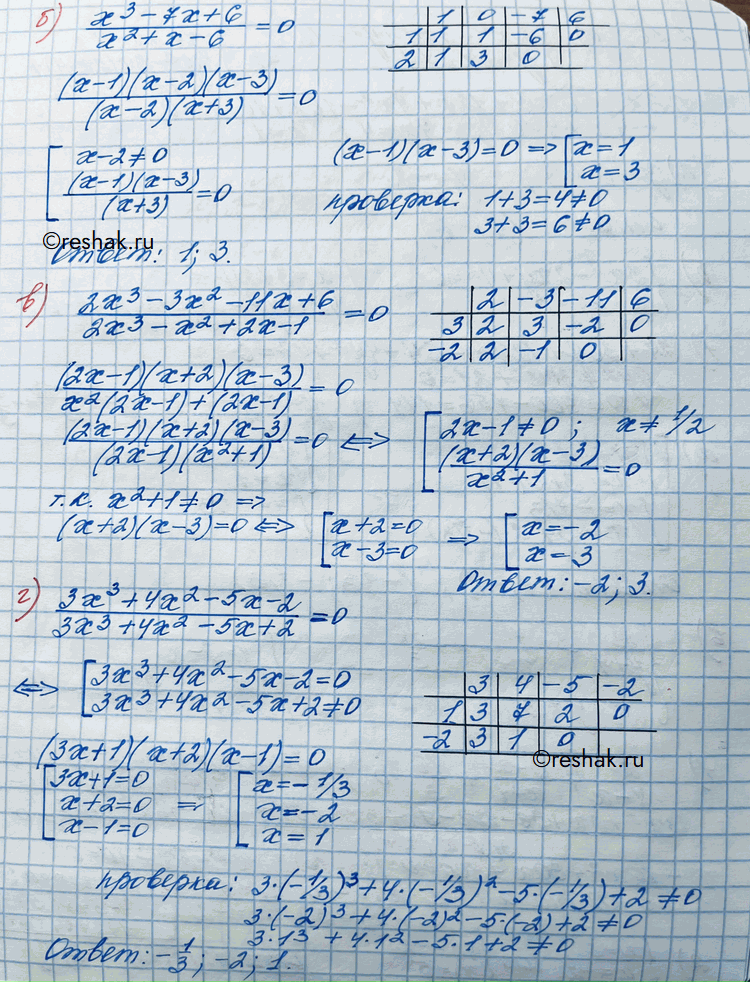 б) (x³ − 7x + 6)/(x² + x − 6) = 0
| 1 | 0 | −7 | 6
1 | 1 | 1 | −6 | 0
2 | 1 | 3 | 0 |
((x−1)(x−2)(x−3))/((x−2)(x+3)) = 0
[ x−2≠0
((x−1)(x−3))/((x+3)) = 0
(x−1)(x−3)=0 ⇒ [ x=1
x=3
проверка: 1+3=4≠0
3+3=6≠0
©reshak.ru
Ответ: 1; 3.
в) (2x³ − 3x² − 11x + 6)/(2x³ − x² + 2x − 1) = 0
| 2 | −3 | −11 | 6
3 | 2 | 3 | −2 | 0
−2 | 2 | −1 | 0 |
((2x−1)(x+2)(x−3))/(x²(2x−1)+(2x−1)) = 0
((2x−1)(x+2)(x−3))/((2x−1)(x²+1)) = 0 ⇔ [ 2x−1≠0; x≠1/2
((x+2)(x−3))/(x²+1) = 0
т.к. x²+1≠0 ⇒
(x+2)(x−3)=0 ⇔ [ x+2=0
x−3=0 ⇒ [ x=−2
x=3
Ответ: −2; 3.
г) (3x³+4x²−5x−2)/(3x³+4x²−5x+2) = 0
⇔ [ 3x³+4x²−5x−2=0
3x³+4x²−5x+2≠0
| 3 | 4 | −5 | −2
1 | 3 | 7 | 2 | 0
−2 | 3 | 1 | 0 |
©reshak.ru
(3x+1)(x+2)(x−1)=0
[ 3x+1=0
x+2=0
x−1=0 ⇒ [ x=−1/3
x=−2
x=1
проверка: 3·(−1/3)³+4·(−1/3)²−5·(−1/3)+2≠0
3·(−2)³+4·(−2)²−5·(−2)+2≠0
3·1³+4·1²−5·1+2≠0
Ответ: −1/3; −2; 1.